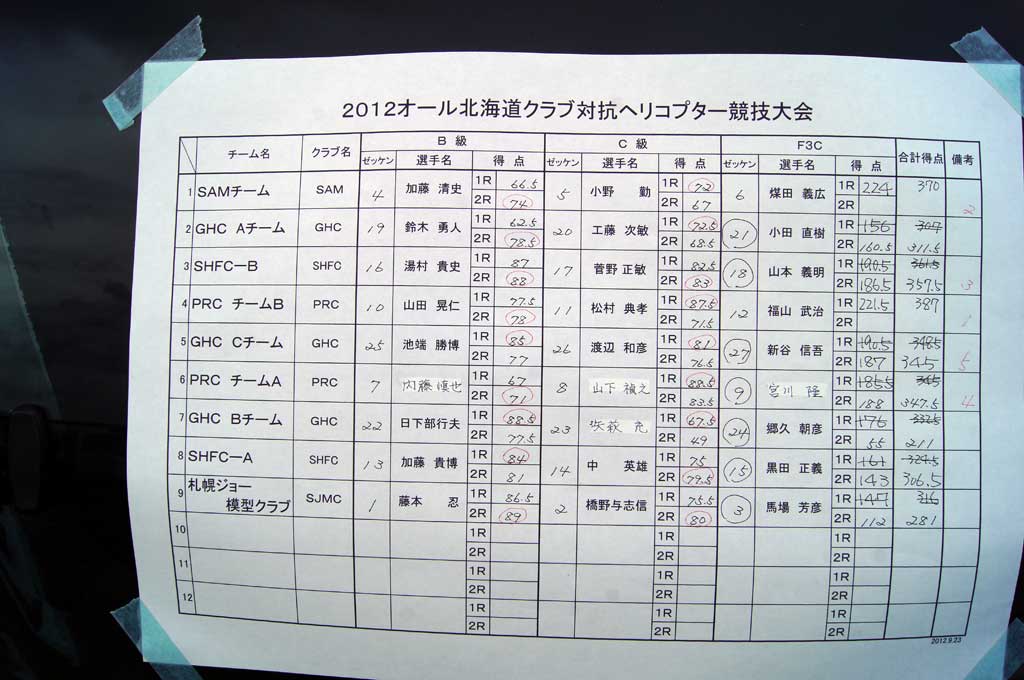 2012オール北海道クラブ対抗ヘリコプター競技大会
チーム名 クラブ名 B 級 C 級 F3C 合計得点 備考
ゼッケン 選手名 得 点 ゼッケン 選手名 得 点 ゼッケン 選手名 得 点
1 SAMチーム SAM 4 加藤 清史 1R 66.5 5 小野 勤 1R 72 6 煤田 義広 1R 224 370
2R 74 2R 67 2R 2
2 GHC Aチーム GHC 19 鈴木 勇人 1R 62.5 20 工藤 次敏 1R 72.5 21 小田 直樹 1R 156 307
2R 78.5 2R 68.5 2R 160.5 311.5
3 SHFCーB SHFC 16 湯村 貴史 1R 87 17 菅野 正敏 1R 82.5 18 山本 義明 1R 190.5 361.5
2R 88 2R 83 2R 186.5 357.5 3
4 PRC チームB PRC 10 山田 晃仁 1R 77.5 11 松村 典孝 1R 87.5 12 福山 武治 1R 221.5 387
2R 78 2R 71.5 2R 1
5 GHC Cチーム GHC 25 池端 勝博 1R 85 26 渡辺 和彦 1R 81 27 新谷 信吾 1R 190.5 348.5
2R 77 2R 76.5 2R 187 345 5
6 PRC チームA PRC 7 内藤 慎也 1R 67 8 山下 禎之 1R 88.5 9 宮川 隆 1R 185.5 345
2R 71 2R 83.5 2R 188 347.5 4
7 GHC Bチーム GHC 22 日下部行夫 1R 88.5 23 1R 67.5 24 郷久 朝彦 1R 176 332.5
2R 77.5 2R 49 2R 55 211
8 SHFCーA SHFC 13 加藤 貴博 1R 84 14 中 英雄 1R 75 15 黒田 正義 1R 161 324.5
2R 81 2R 79.5 2R 143 306.5
9 札幌ジョー
模型クラブ SJMC 1 藤本 忍 1R 86.5 2 橋野与志信 1R 75.5 3 馬場 芳彦 1R 147 316
2R 89 2R 80 2R 112 281
10 1R 1R 1R
2R 2R 2R
11 1R 1R 1R
2R 2R 2R
12 1R 1R 1R
2R 2R 2R
2012.9.23